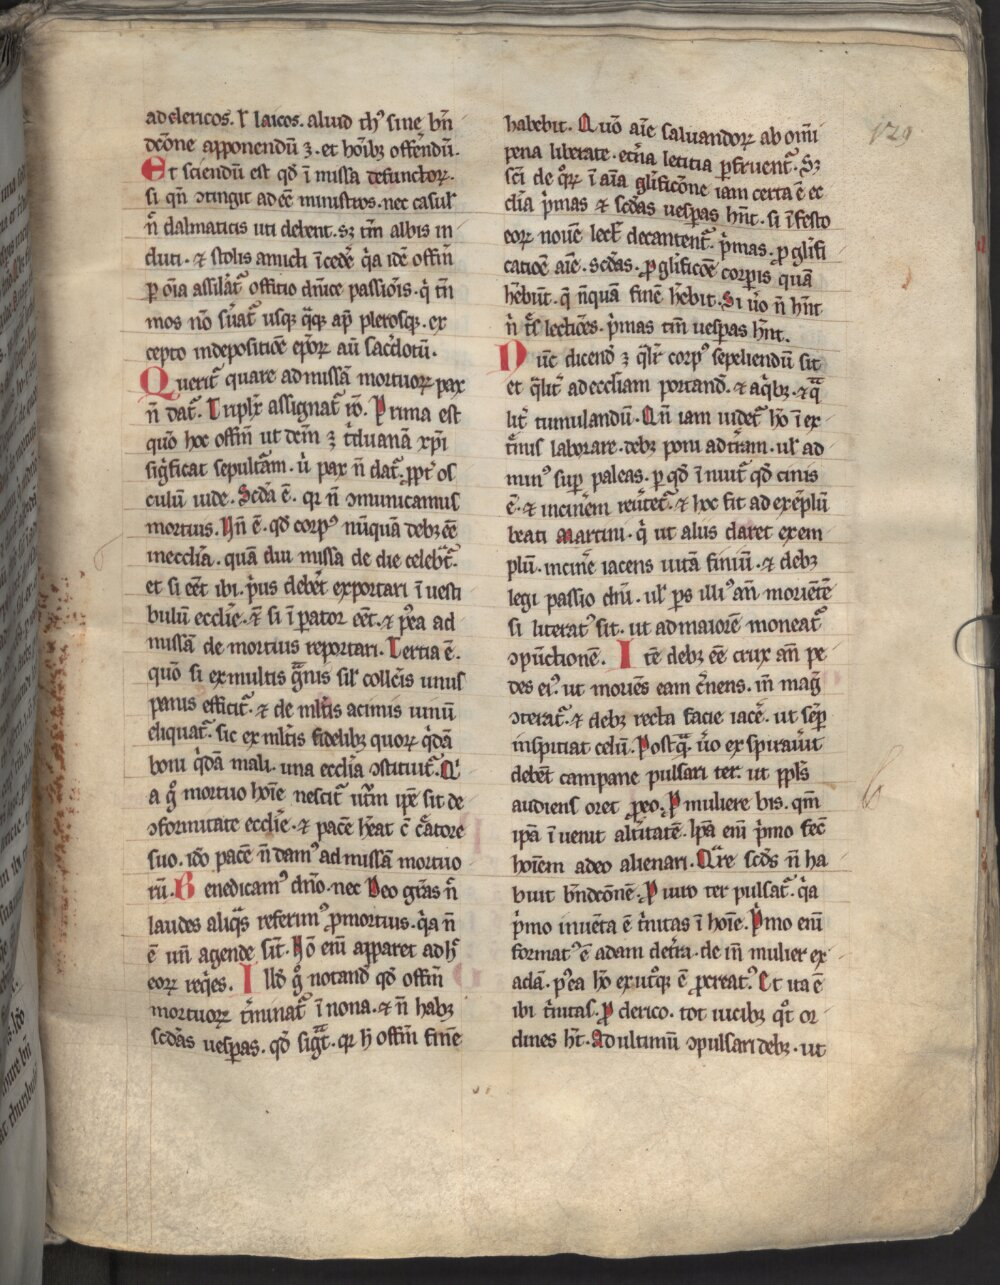 ad clericos. ł laicos. aliud th᷒ sine bn̄
dcōne apponendū ꝫ. et hōibꝫ offendū.
Et sciendū est qđ ī missa defunctoꝝ.
si qn̄ ↄtingit adēe ministros. nec casul᷒
n̄ dalmaticis uti debent. sꝫ tm̄ albis in
duti. ⁊ stolis amicti īcedē. q̇a idē offm̄
ꝑ oīa assilāt᷒ offitio dn̄ice passiōis. q̇ tn̄
mos nō ẜuat᷒ usqꝫ q̄qꝫ ap̄ plerosqꝫ. ex
cepto indepositiōe ep̄oꝝ aū sac̄dotū.
Querit᷒ quare ad missā mortuoꝝ pax
n̄ dat᷒. Triplr̄ assignat᷒ rō. Prima est
quō hoc offm̄ ut dem̄ ꝫ t̄duanā xp̄i
sig̈ficat sepultᷓam. u̇ pax n̄ dat᷒. ꝓpt᷒ os
culū iude. Scdā ē. qꝛ n̄ ↄmunicamus
mortuis. Nn̄ ē. qđ corpꝰ nūquā debꝫ ēe
ineccl̄ia. quā diu missa de die celebᷓt᷒.
et si ēet ibi. ṗus debēt exportari ī uesti
bulū eccl̄ie. ⁊ si īpator ēet. ⁊ p̄ea ad
missā de mortuis reportari. Tertia ē.
quō si ex multis gᷓnis sil᷒ collc̄is unus
panis efficit᷒. ⁊ de ml̄tis acinis uinū
eliquat᷒. sic ex ml̄tis fidelibꝫ quoꝝ q̇dā
boni q̇dā mali. una eccl̄ia ↄstituit᷒. Q᷒
a g̊ mortuo hoīe nescit᷒ utᷓm ip̄e sit de
ↄformitate eccl̄ie. ⁊ pacē hēat c̄ cᷓatore
suo. idō pacē n̄ damꝰ ad missā mortuo
rū. Benedicamꝰ dn̄o. nec Deo grās n̄
laudes aliq̄s referimꝰ ꝓ mortuis. q̇a n̄
ē un̄ agende sit᷒. Nō enī apparet ad h᷒
eoꝝ req̇es. Illđ g̊ notand qđ offm̄
mortuoꝝ t̄minat᷒ ī nona. ⁊ n̄ habꝫ
scdās uesꝑas. qđ sig̈t᷒. qꝛ ħ offm̄ finē
habebit. Quō aīe saluandoꝝ ab omī
pena liberate. etn̄a letitia ꝑfruent᷒. Sꝫ
scī de q̊ꝝ ī aīa gl̄ificōne iam certa ē ec
cl̄ia ṗmas ⁊ scdās uesꝑas hn̄t. si ī festo
eoꝝ nouē lect᷒ decantent᷒. ṗmas. ꝓ gl̄ifi
catiōe aīe. scdās. ꝓ gl̄ificōe corꝑis quā
hēbūt. q̄ nūquā finē hēbit. Si u̇o n̄ hn̄t
n̄ t̄s lectiōes. ṗmas tm̄ uesꝑas hn̄t.
Nūc dicend ꝫ q̄lr̄ corpꝰ sepeliendū sit
et q̄lit᷒ ad eccl̄iam portand. ⁊ aq̇bꝫ. ⁊ qᷓ
lit᷒ tumulandū. Qn̄ iam uidet᷒ hō ī ex
t̄mis laborare. debꝫ poni ad t̄ram. ul᷒ ad
minꝰ suꝑ paleas. ꝑ qđ īnuit᷒ qđ cinis
ē. ⁊ incinēm reūtet᷒. ⁊ hoc fit ad exēplū
beati Martini. q̇ ut aliis daret exem
plū. incinē iacens uitā finiūi. ⁊ debꝫ
legi passio dn̄i. ul᷒ ꝑs illiꝰ an̄ moriētē
si literatꝰ sit. ut ad maiorē moneat᷒
ↄpūctionē. Itē debꝫ ēe crux an̄ pe
des eiꝰ. ut moriēs eam c̄nens. m̄ mag̊
ↄterat᷒. ⁊ debꝫ recta facie iacē. ut semꝑ
inspitiat celū. Postqᷓ u̇o expirauit
debēt campane pulsari ter. ut ppl̄s
audiens oret ꝓ eo. P muliere bis. qm̄
ip̄a īuenit alt̄itatē. Ip̄a enī ṗmo fec̄
hoīem adeo alienari. Qᷓre scđs n̄ ha
buit bn̄dcōnē. P uiro ter pulsat᷒. q̇a
ṗmo inuēta ē t̄nitas ī hoīe. Ṗmo enī
formatꝰ ē adam det̄ra. de īn mulier ex
adā. p̄ea hō ex ut̊qꝫ ē ꝓcreatꝰ. Et ita ē
ibi t̄nitas. P clerico. tot uicibꝫ q̊t or
dines ht̄. Ad ultimū ↄpulsari debꝫ. ut
129